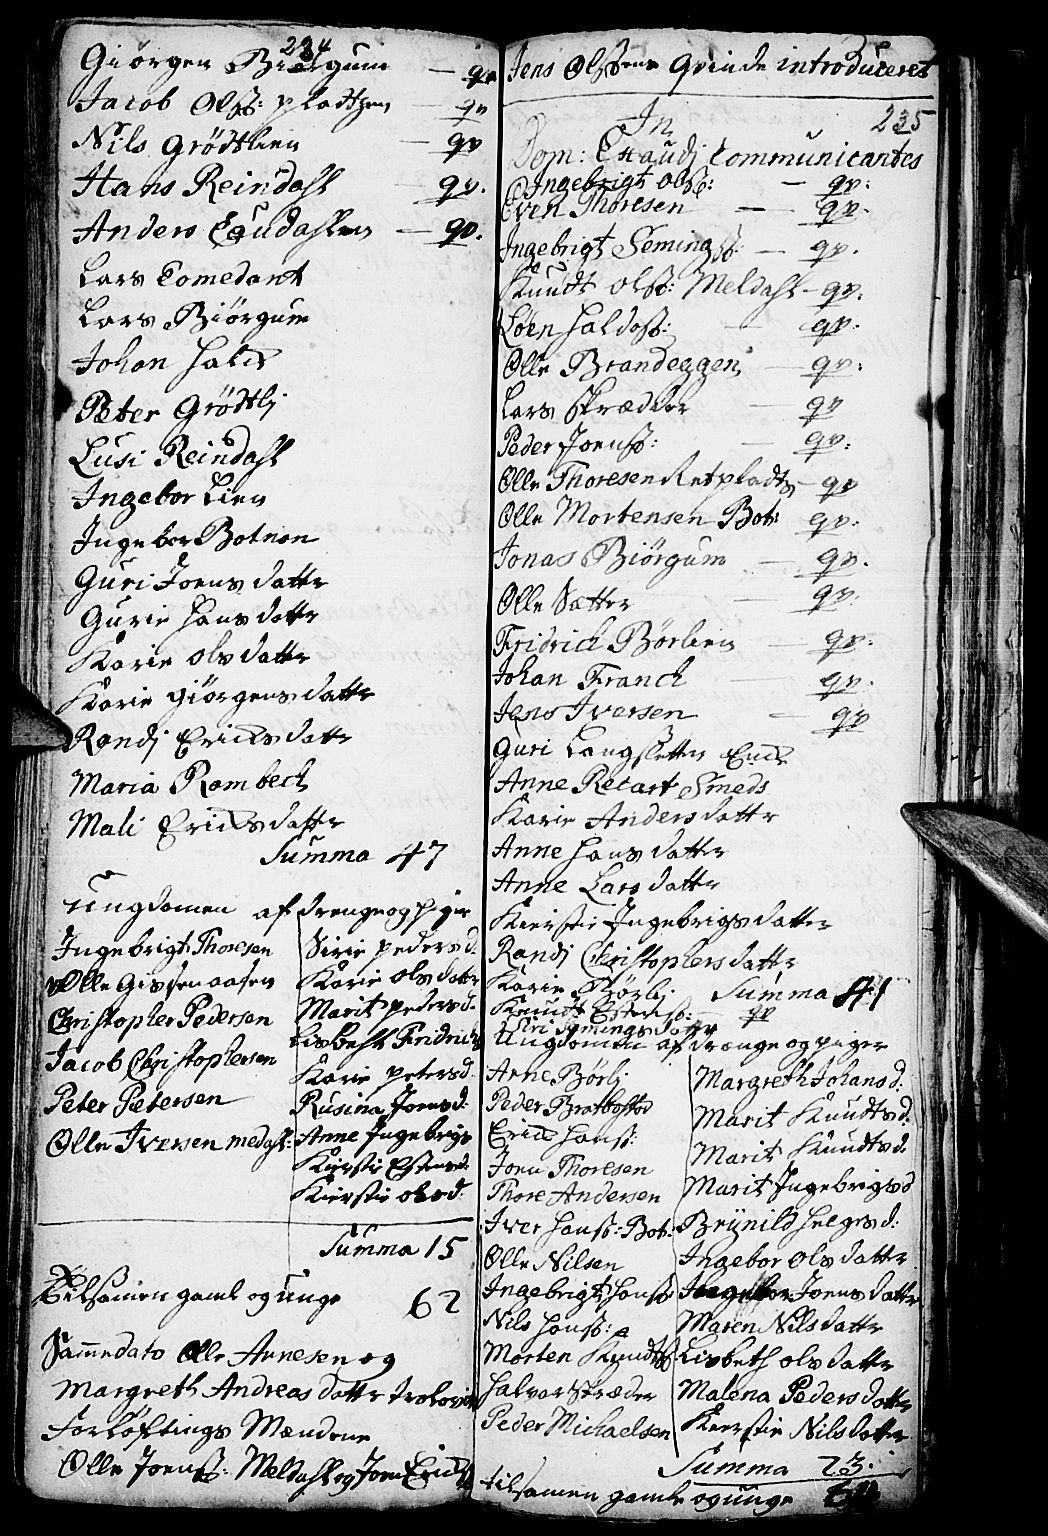 234
Giörgen Biörgum — qv
Jacob Olsß: pladtzen — qv
Nils Grödtlien — qv
Hans Reindahl — qv.
Anders — qv.
Lars Comedant
Lars Biörgum
Johan
Peter Grödtlj
Lusi Reindahl
Ingebor Lien
Ingebor Botnen
Guri Joens datter
Gurie Hans datter
Karie Ols datter
Karie Giörgens datter
Randj Erichs datter
Maria Rombech
Mali Erichs datter
Summa 47
Ungdomen af drenge og piger
Ingebrigt Thoresen
Olle Gissenaasen
Christopher Pedersen
Jacob Christophersen
Peter Petersen
Olle Iversen medahl:
Sirie peders d.
Karie Ols datter
Marit peders d.
Lisbeth Fridrichs
Karie peters d.
Rusina Joens d:
Anne Ingebrigs
Kierstie Estens d:
Kierstie Ols d:
Summa 15
Tilsamen gamle og unge 62
Samedato Olle Arnesen og
Margreth Andreas datter trolovet
Forløftings Mændene
Olle Joensß: Meldahl og Joen Erichsß
Jens Olsens Qvinde introduceret
235
In
Dom: Exaudj Communicantes
Ingebrigt Olsß: — qv:
Even Thoresen — qv.
Ingebrigt Semingsß — qv.
Knudt Olsß: Meldahl — qv.
Loen Haldosß: — qv.
Olle Brandeggen — qv:
Lars Skrædder — qv
Peder Joensß: — qv:
Olle Thoresen Retpladts — qv
Olle Mortensen Bot: qv.
Jonas Biörgum — qv.
Olle Sætter — qv.
Fridrich Børlien — qv.
Johan Franch — qv.
Jens Iversen — qv
Guri Langsletten Enche
Anne Retart Smeds
Karie Anders datter
Anne Hans datter
Anne Lars datter
Kierstie Ingebrigs datter
Randj Christophers datter
Karie Børlj Summa 41
Knudt Estensß: — qv
Siri Symings datter
Ungdomen af drænge og piger
Arne Børlj
Peder Bratbøstad
Erich Hansß:
Joen Thoresen
Thore Andersen
Iver Hansß: Bot:
Olle Nilsen
Ingebrigt Hansß
Nils Hansß:
Morten Knudtsß
Halvor Skræder
Peder Michaelsen
Margreth Johans d:
Marit Knudts d:
Marit Knudts d.
Marit Ingebrigs d
Brynild Helges d:
Ingebor Ols datter
Ingebor Joens datter
Maren Nils datter
Lisbeth Ols datter
Malena Peders datter
Kierstie Nils datter
Summa 23.
tilsamen gamle og unge 64